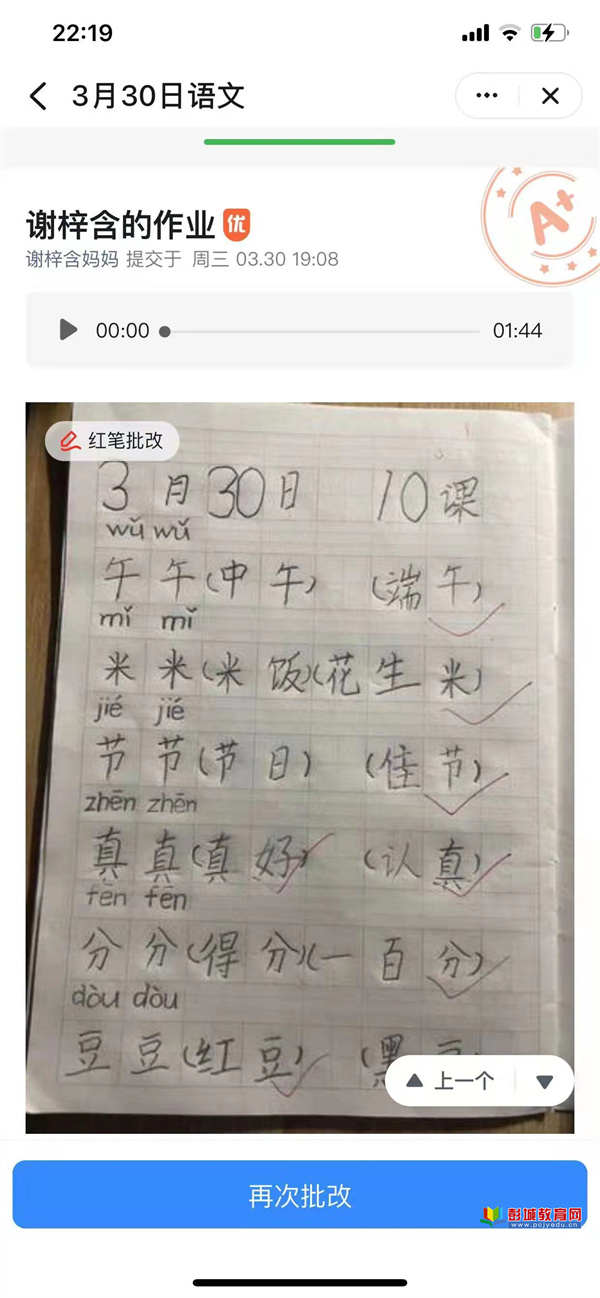 22:19
3月30日语文
谢梓含的作业 优
A+
谢梓含妈妈 提交于 周三 03.30 19:08
00:00 01:44
红笔批改
3月30日 10课
wǔ wǔ
午 午(中午) (端午)
mǐ mǐ
米 米(米饭)(花生米)
jié jié
节 节(节日) (佳节)
zhēn zhēn
真 真(真好) (认真)
fēn fēn
分 分(得分)(一百分)
dòu dòu
豆 豆(红豆) (黑
上一个
再次批改
彭城教育网
www.pcjyedu.cn